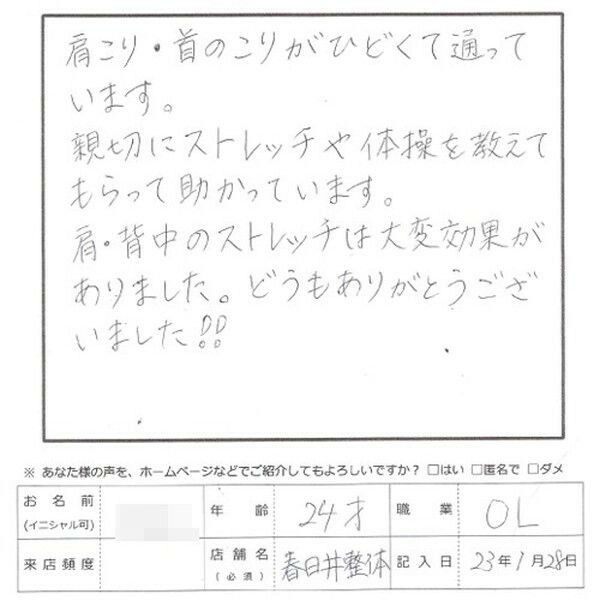 肩こり・首のこりがひどくて通って
います。
親切にストレッチや体操を教えて
もらって助かっています。
肩・背中のストレッチは大変効果が
ありました。どうもありがとうござ
いました!!
※ あなた様の声を、ホームページなどでご紹介してもよろしいですか? □はい □匿名で □ダメ
お名前 (イニシャル可) 年齢 24才 職業 OL
来店頻度 店舗名 (必須) 春日井整体 記入日 23年1月28日